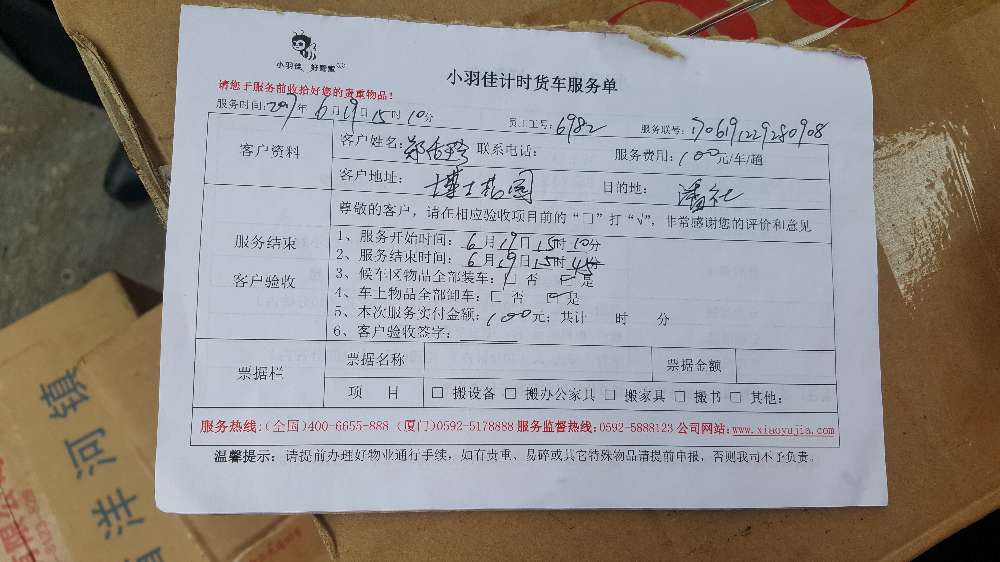 小羽佳 好慷
小羽佳计时货车服务单
请您于服务前收拾好您的贵重物品!
服务时间:2017年6月19日15时10分 员工工号:6982 服务联号:170619122928090​8
客户资料
客户姓名: 联系电话: 服务费用:100元/车/趟
客户地址:博士花园 目的地:潘社
尊敬的客户,请在相应验收项目前的“□”打“√”,非常感谢您的评价和意见
服务结束
客户验收
1、服务开始时间:6月19日15时10分
2、服务结束时间:6月19日15时45分
3、候车区物品全部装车:□ 否 ☑是
4、车上物品全部卸车:□ 否 ☑是
5、本次服务实付金额:100元;共计 时 分
6、客户验收签字:
票据栏
票据名称 票据金额
项 目 □ 搬设备 □ 搬办公家具 □ 搬家具 □ 搬书 □ 其他:
服务热线:(全国)400-6655-888 (厦门)0592-5178888 服务监督热线:0592-5888123 公司网站:www.xiaoyujia.com
温馨提示: 请提前办理好物业通行手续,如有贵重、易碎或其它特殊物品请提前申报,否则我司不予负责。
洋河镇